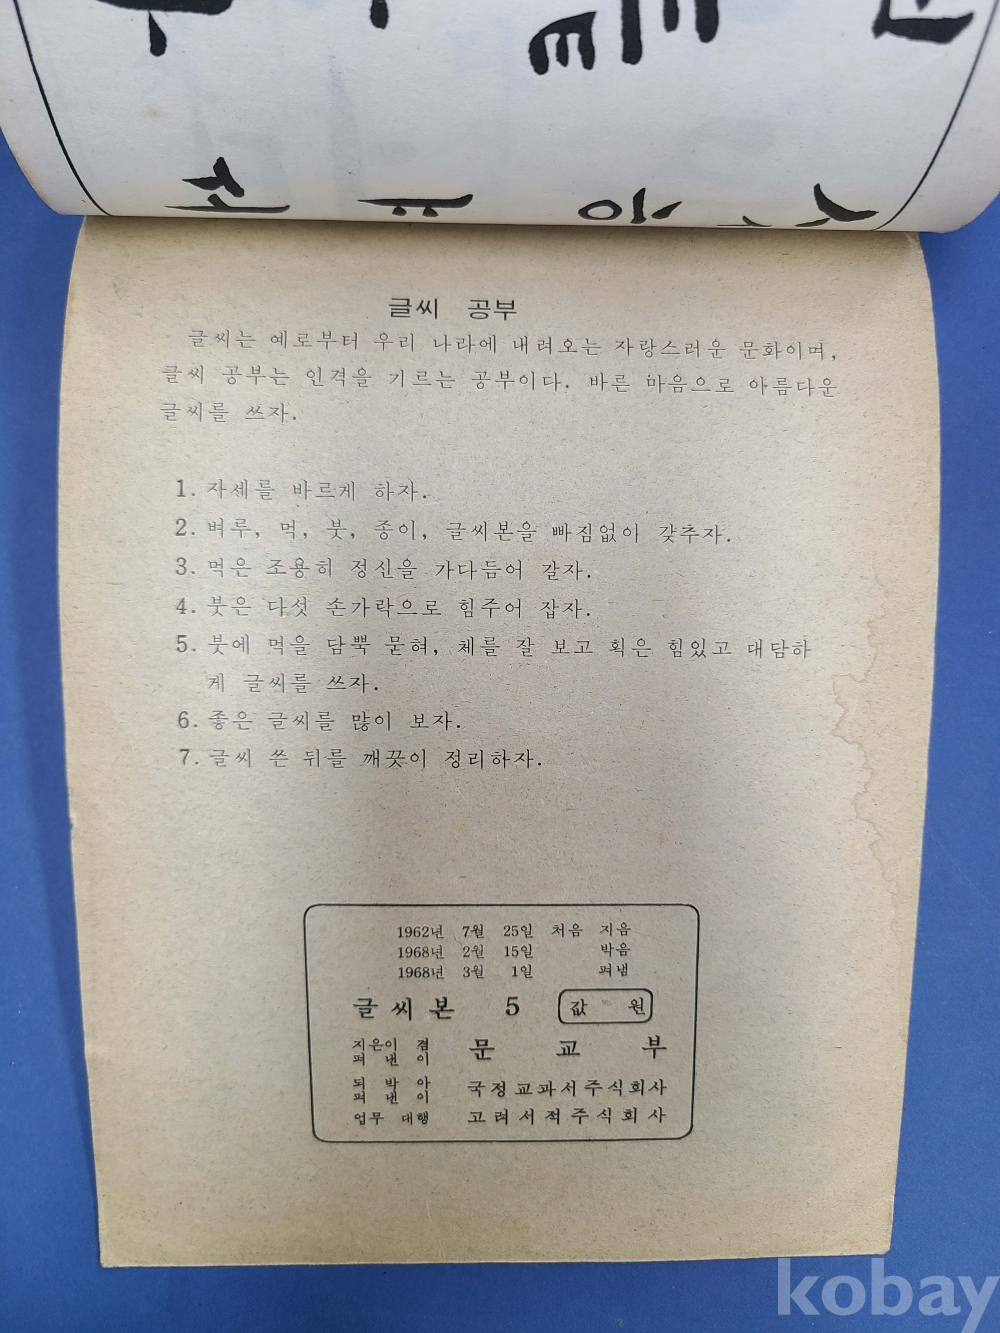 글씨 공부
글씨는 예로부터 우리 나라에 내려오는 자랑스러운 문화이며,
글씨 공부는 인격을 기르는 공부이다. 바른 마음으로 아름다운
글씨를 쓰자.
1. 자세를 바르게 하자.
2. 벼루, 먹, 붓, 종이, 글씨본을 빠짐없이 갖추자.
3. 먹은 조용히 정신을 가다듬어 갈자.
4. 붓은 다섯 손가락으로 힘주어 잡자.
5. 붓에 먹을 담뿍 묻혀, 체를 잘 보고 획은 힘있고 대담하
게 글씨를 쓰자.
6. 좋은 글씨를 많이 보자.
7. 글씨 쓴 뒤를 깨끗이 정리하자.
1962년 7월 25일 처음 지음
1968년 2월 15일 박음
1968년 3월 1일 펴냄
글씨본 5 값 원
지은이 겸
펴낸이 문교부
되박아
펴낸이 국정교과서주식회사
업무 대행 고려서적주식회사
kobay